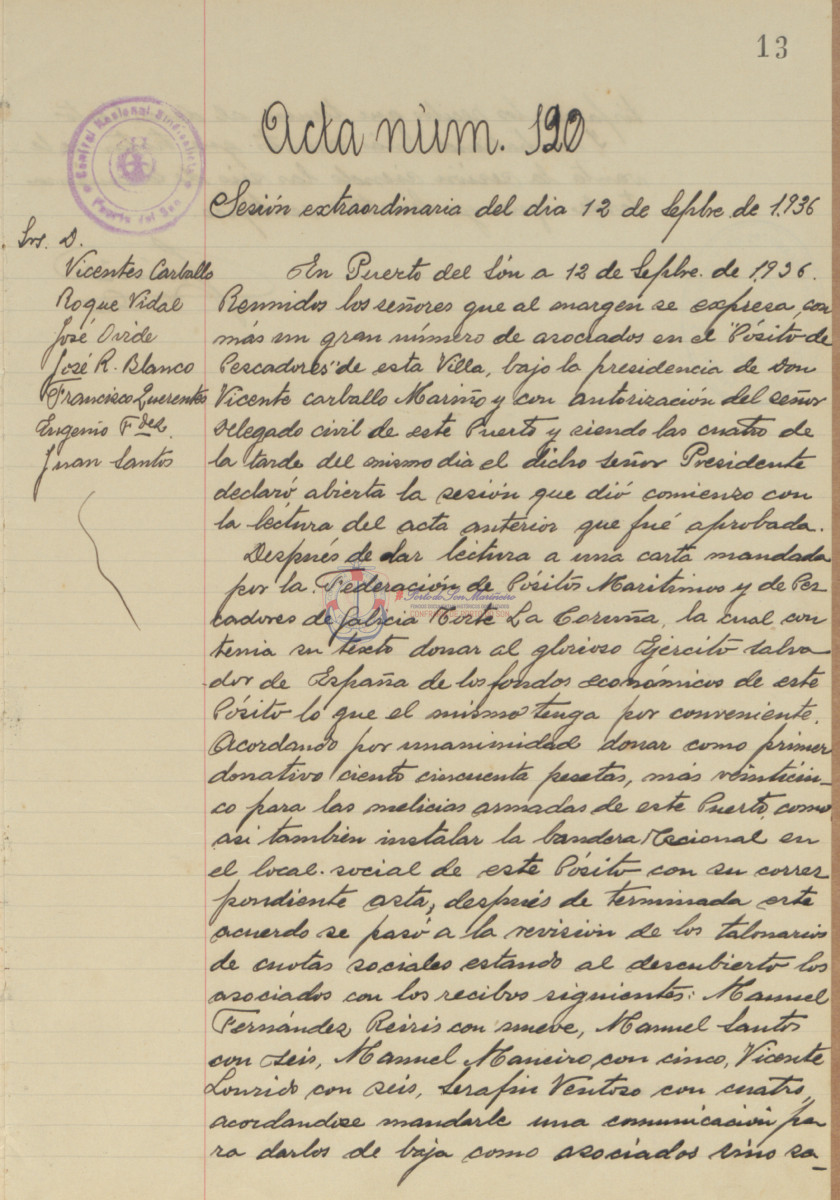 13
Acta núm. 120
Central Nacional-Sindicalista
Puerto del Son
Sesión extraordinaria del dia 12 de Sepbre. de 1.936
Srs. D.
Vicentes Carballo
Roque Vidal
José Ovide
José R. Blanco
Francisco Querentes
Eugenio Fdez.
Juan Santos
En Puerto del Són a 12 de Sepbre. de 1.936.
Reunidos los señores que al margen se expresa, con
más un gran número de asociados en el "Pósito de
Pescadores" de esta Villa, bajo la presidencia de Don
Vicente Carballo Mariño y con autorización del señor
Delegado civil de este Puerto y siendo las cuatro de
la tarde del mismo dia el dicho señor Presidente
declaró abierta la sesión que dió comienzo con
la léctura del acta anterior que fué aprobada.
Después de dar lectura a una carta mandada
por la Federación de Pósitos Maritimos y de Pes
cadores de Galicia Norte La Coruña, la cual con
tenia su texto donar al glorioso Ejército salva
dor de España de los fondos económicos de este
Pósito lo que el mismo tenga por conveniente.
Acordando por unanimidad donar como primer
donativo ciento cincuenta pesetas, más veinticin-
co para las melicias armadas de este Puerto, como
asi también instalar la bandera Nacional en
el local social de este Pósito con su corres
pondiente asta, después de terminada este
acuerdo se pasó a la revisión de los talonarios
de cuotas sociales estando al descubierto los
asociados con los recibos siguientes: Manuel
Fernández Reiris con nueve, Manuel Santos
con seis, Manuel Maneiro con cinco, Vicente
Lourido con seis, Serafin Ventoso con cuatro,
acordandose mandarle una comunicación pa
ra darlos de baja como asociados sino sa-
Porto do Son Mariñeiro